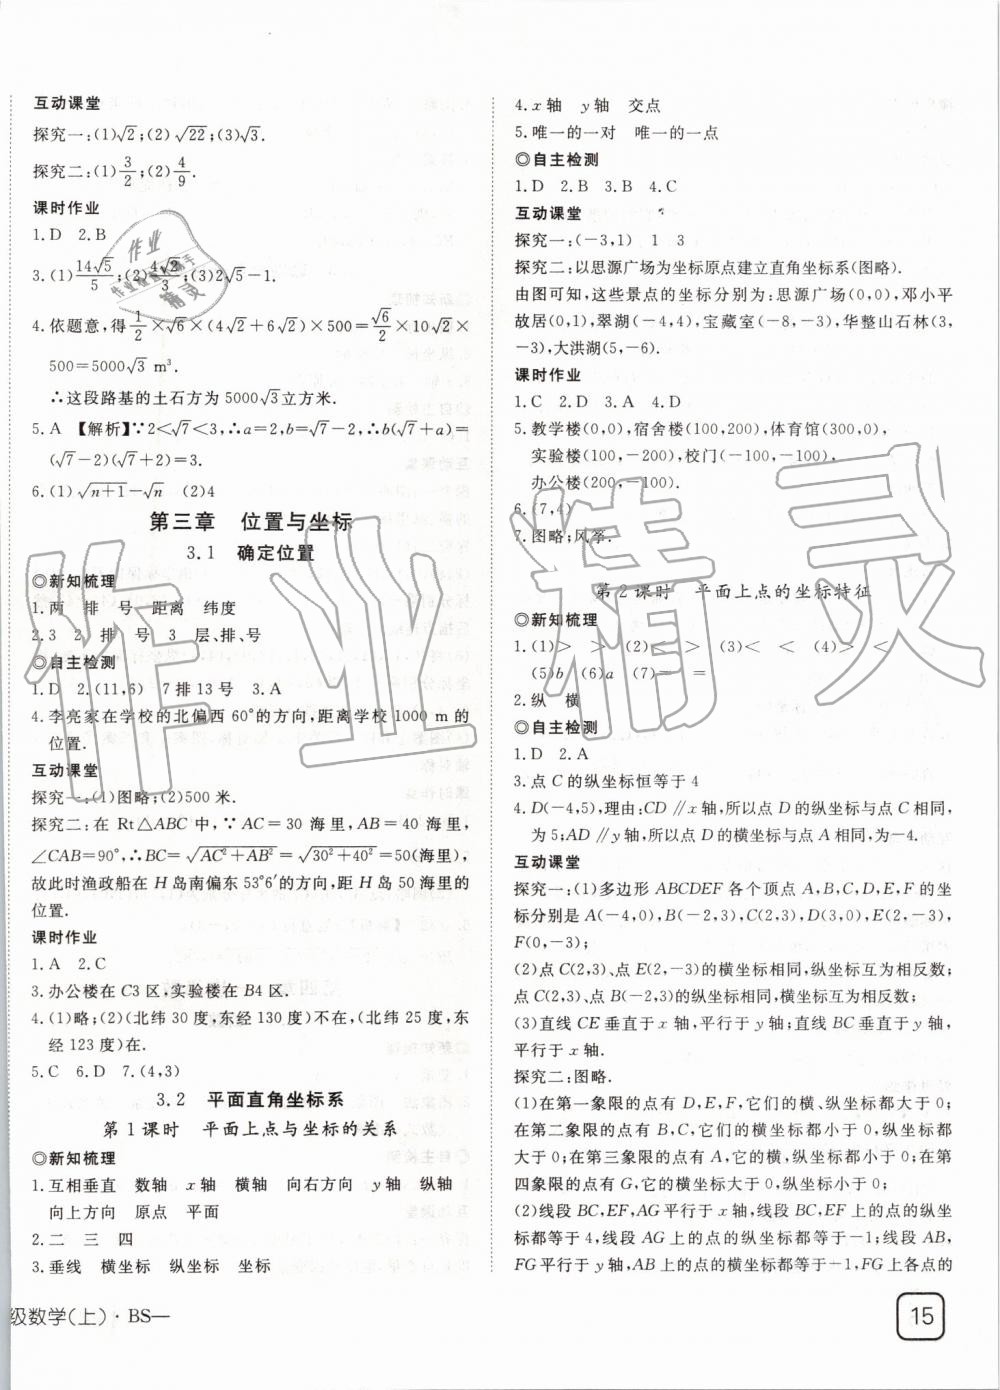 互动课堂
探究一:(1)√2;(2)√22;(3)√3.
探究二:(1)3/2;(2)4/9.
课时作业
1.D 2.B
3.(1)14√5/5;(2)4√2/3;(3)2√5-1.
4.依题意,得1/2×√6×(4√2+6√2)×500=√6/2×10√2×
500=5000√3 m³.
∴这段路基的土石方为5000√3立方米.
5.A 【解析】∵2<√7<3,∴a=2,b=√7-2,∴b(√7+a)=
(√7-2)(√7+2)=3.
6.(1)√n+1-√n (2)4
第三章 位置与坐标
3.1 确定位置
◎新知梳理
1.两 排 号 距离 纬度
2.3 2 排 号 3 层、排、号
◎自主检测
1.D 2.(11,6) 7排13号 3.A
4.李亮家在学校的北偏西60°的方向,距离学校1000 m的
位置.
互动课堂
探究一:(1)图略;(2)500米.
探究二:在Rt△ABC中,∵AC=30海里,AB=40海里,
∠CAB=90°,∴BC=√AC²+AB²=√30²+40²=50(海里),
故此时渔政船在H岛南偏东53°6′的方向,距H岛50海里的
位置.
课时作业
1.A 2.C
3.办公楼在C3区,实验楼在B4区.
4.(1)略;(2)(北纬30度,东经130度)不在,(北纬25度,东
经123度)在.
5.C 6.D 7.(4,3)
3.2 平面直角坐标系
第1课时 平面上点与坐标的关系
◎新知梳理
1.互相垂直 数轴 x轴 横轴 向右方向 y轴 纵轴
向上方向 原点 平面
2.二 三 四
3.垂线 横坐标 纵坐标 坐标
4.x轴 y轴 交点
5.唯一的一对 唯一的一点
◎自主检测
1.D 2.B 3.B 4.C
互动课堂
探究一:(-3,1) 1 3
探究二:以思源广场为坐标原点建立直角坐标系(图略).
由图可知,这些景点的坐标分别为:思源广场(0,0),邓小平
故居(0,1),翠湖(-4,4),宝藏室(-8,-3),华整山石林(3,
-3),大洪湖(5,-6).
课时作业
1.C 2.D 3.A 4.D
5.教学楼(0,0),宿舍楼(100,200),体育馆(300,0),
实验楼(100,-200),校门(-100,-100),
办公楼(200,-100).
6.(7,4)
7.图略;风筝.
第2课时 平面上点的坐标特征
◎新知梳理
1.(1)> > (2)< > (3)< < (4)> <
(5)b (6)a (7)= =
2.纵 横
◎自主检测
1.D 2.A
3.点C的纵坐标恒等于4
4.D(-4,5),理由:CD∥x轴,所以点D的纵坐标与点C相同,
为5;AD∥y轴,所以点D的横坐标与点A相同,为-4.
互动课堂
探究一:(1)多边形ABCDEF各个顶点A,B,C,D,E,F的坐
标分别是A(-4,0),B(-2,3),C(2,3),D(3,0),E(2,-3),
F(0,-3);
(2)点C(2,3)、点E(2,-3)的横坐标相同,纵坐标互为相反数;
点C(2,3)、点B(-2,3)的纵坐标相同,横坐标互为相反数;
(3)直线CE垂直于x轴,平行于y轴;直线BC垂直于y轴,
平行于x轴.
探究二:图略.
(1)在第一象限的点有D,E,它们的横、纵坐标都大于0;
在第二象限的点有B,C,它们的横坐标都小于0,纵坐标都
大于0;在第三象限的点有A,它的横、纵坐标都小于0;在第
四象限的点有G,它的横坐标大于0,纵坐标小于0;
(2)线段BC,EF,AG平行于x轴,线段BC,EF上的点的纵坐
标都等于4,线段AG上的点的纵坐标都等于-1;线段AB,
FG平行于y轴,线段AB上各点的横坐标都等于-1,FG上各点的
级数学(上)·BS—
15
作业精灵